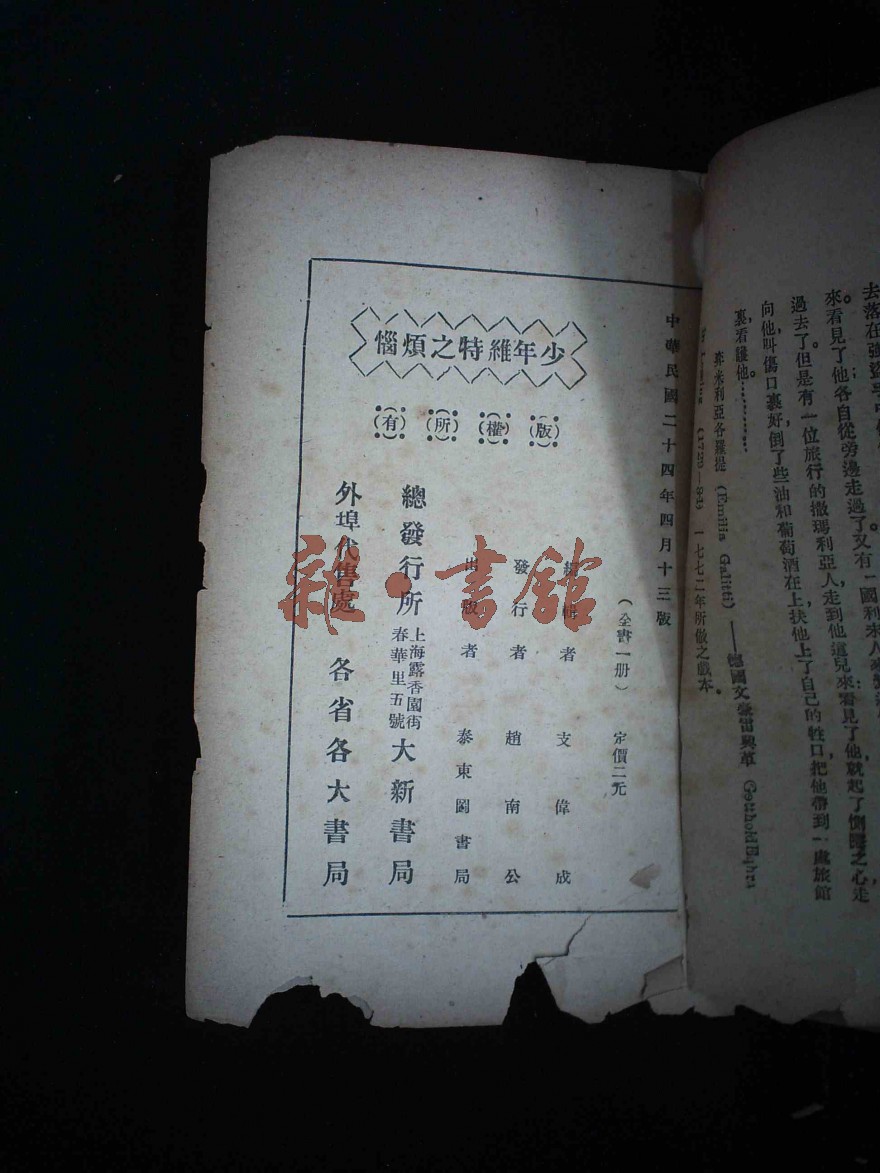 去落在強盜手中
來看見了他各自從旁邊走過了又有一
過去了但是有一位旅行的撒瑪利亞人走到他這兒來看見了他就起了惻隱之心走
向他叫傷口裏好倒了些油和葡萄酒在上扶他上了自己的牲口把他帶到一處旅館
裏看護他…………
弃米利亞各羅提 (Emilia Galotti) ——德國文豪雷興革 Gotthold Ephra
(1729—81) 一七七二年所做之戲本。
中華民國二十四年四月十三版
少年維特之煩惱
版權所有
(全書一册) 定價二元
編輯者 支偉成
發行者 趙南公
出版者 泰東圖書局
總發行所 上海露香園街春華里五號 大新書局
外埠代售處 各省各大書局
雜·書館